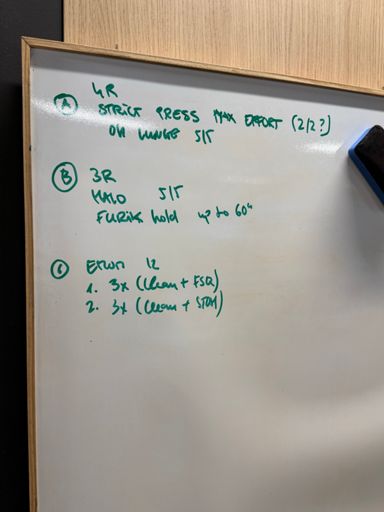 A 4R
STRICT PRESS MAX EFFORT (2/2?)
OH LUNGE 5/5
B 3R
HALO 5/5
hold up to 60"
C 12
1. 3x (Clean + FSQ)
2. 3x (Clean + STOH)